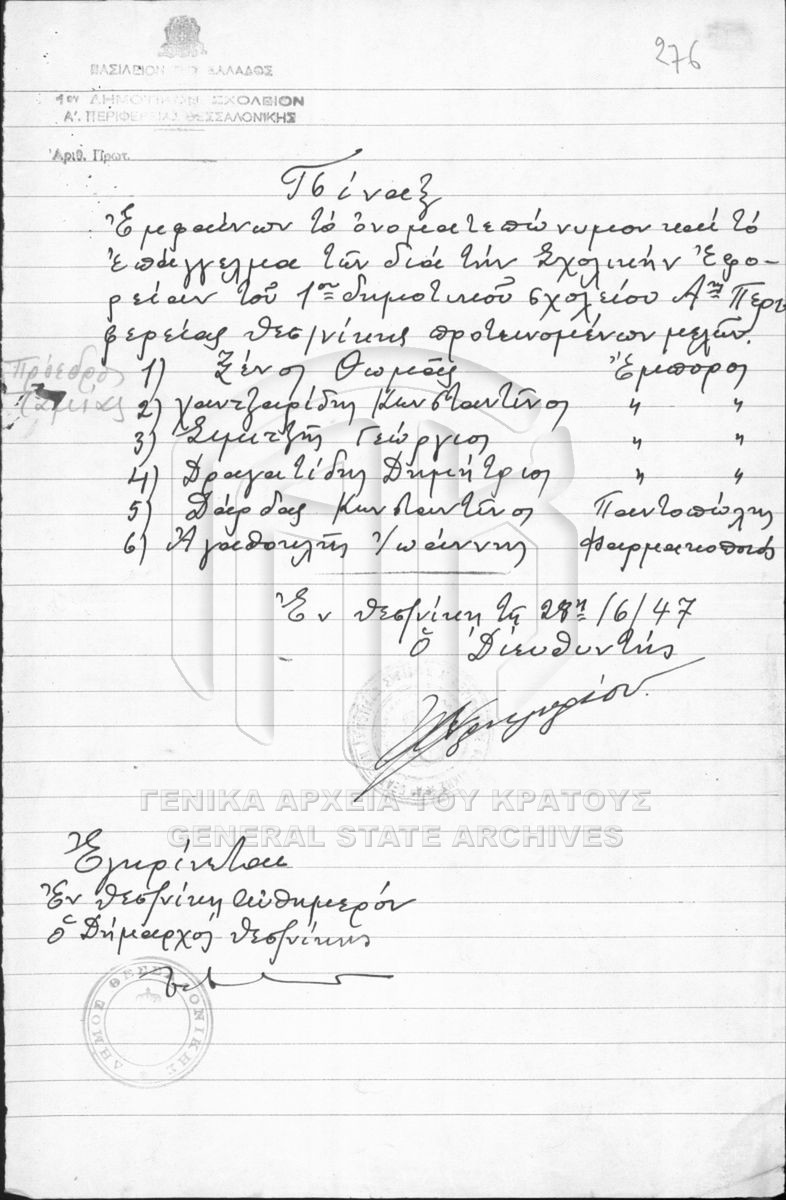 276
ΒΑΣΙΛΕΙΟΝ ΤΗΣ ΕΛΛΑΔΟΣ
1ον ΔΗΜΟΤΙΚΟΝ ΣΧΟΛΕΙΟΝ
Α'. ΠΕΡΙΦΕΡΕΙΑΣ ΘΕΣΣΑΛΟΝΙΚΗΣ
Ἀριθ. Πρωτ.
Πίναξ
Ἐμφαίνων τὸ ὀνοματεπώνυμον καὶ τὸ
ἐπάγγελμα τῶν διὰ τὴν Σχολικὴν Ἐφο-
ρείαν τοῦ 1ου δημοτικοῦ σχολείου Αης Περι
φερείας Θεσ/νίκης προτεινομένων μελῶν.
Πρόεδρος 1) Ξένος Θωμᾶς Ἔμπορος
Ταμίας 2) Γαντζαρίδης Κωνσταντῖνος " "
3) Σιμιτζῆς Γεώργιος " "
4) Δραγατίδης Δημήτριος " "
5) Δάρδας Κωνσταντῖνος Παντοπώλης
6) Ἀγαθοκλῆς Ἰωάννης Φαρμακοποιός
Ἐν Θεσ/νίκῃ τῇ 28ῃ/6/47
Ὁ Διευθυντής
ΓΕΝΙΚΑ ΑΡΧΕΙΑ ΤΟΥ ΚΡΑΤΟΥΣ
GENERAL STATE ARCHIVES
Ἐγκρίνεται
Ἐν Θεσ/νίκῃ αὐθημερόν
Ὁ Δήμαρχος Θεσ/νίκης
ΔΗΜΟΣ ΘΕΣΣΑΛΟΝΙΚΗΣ